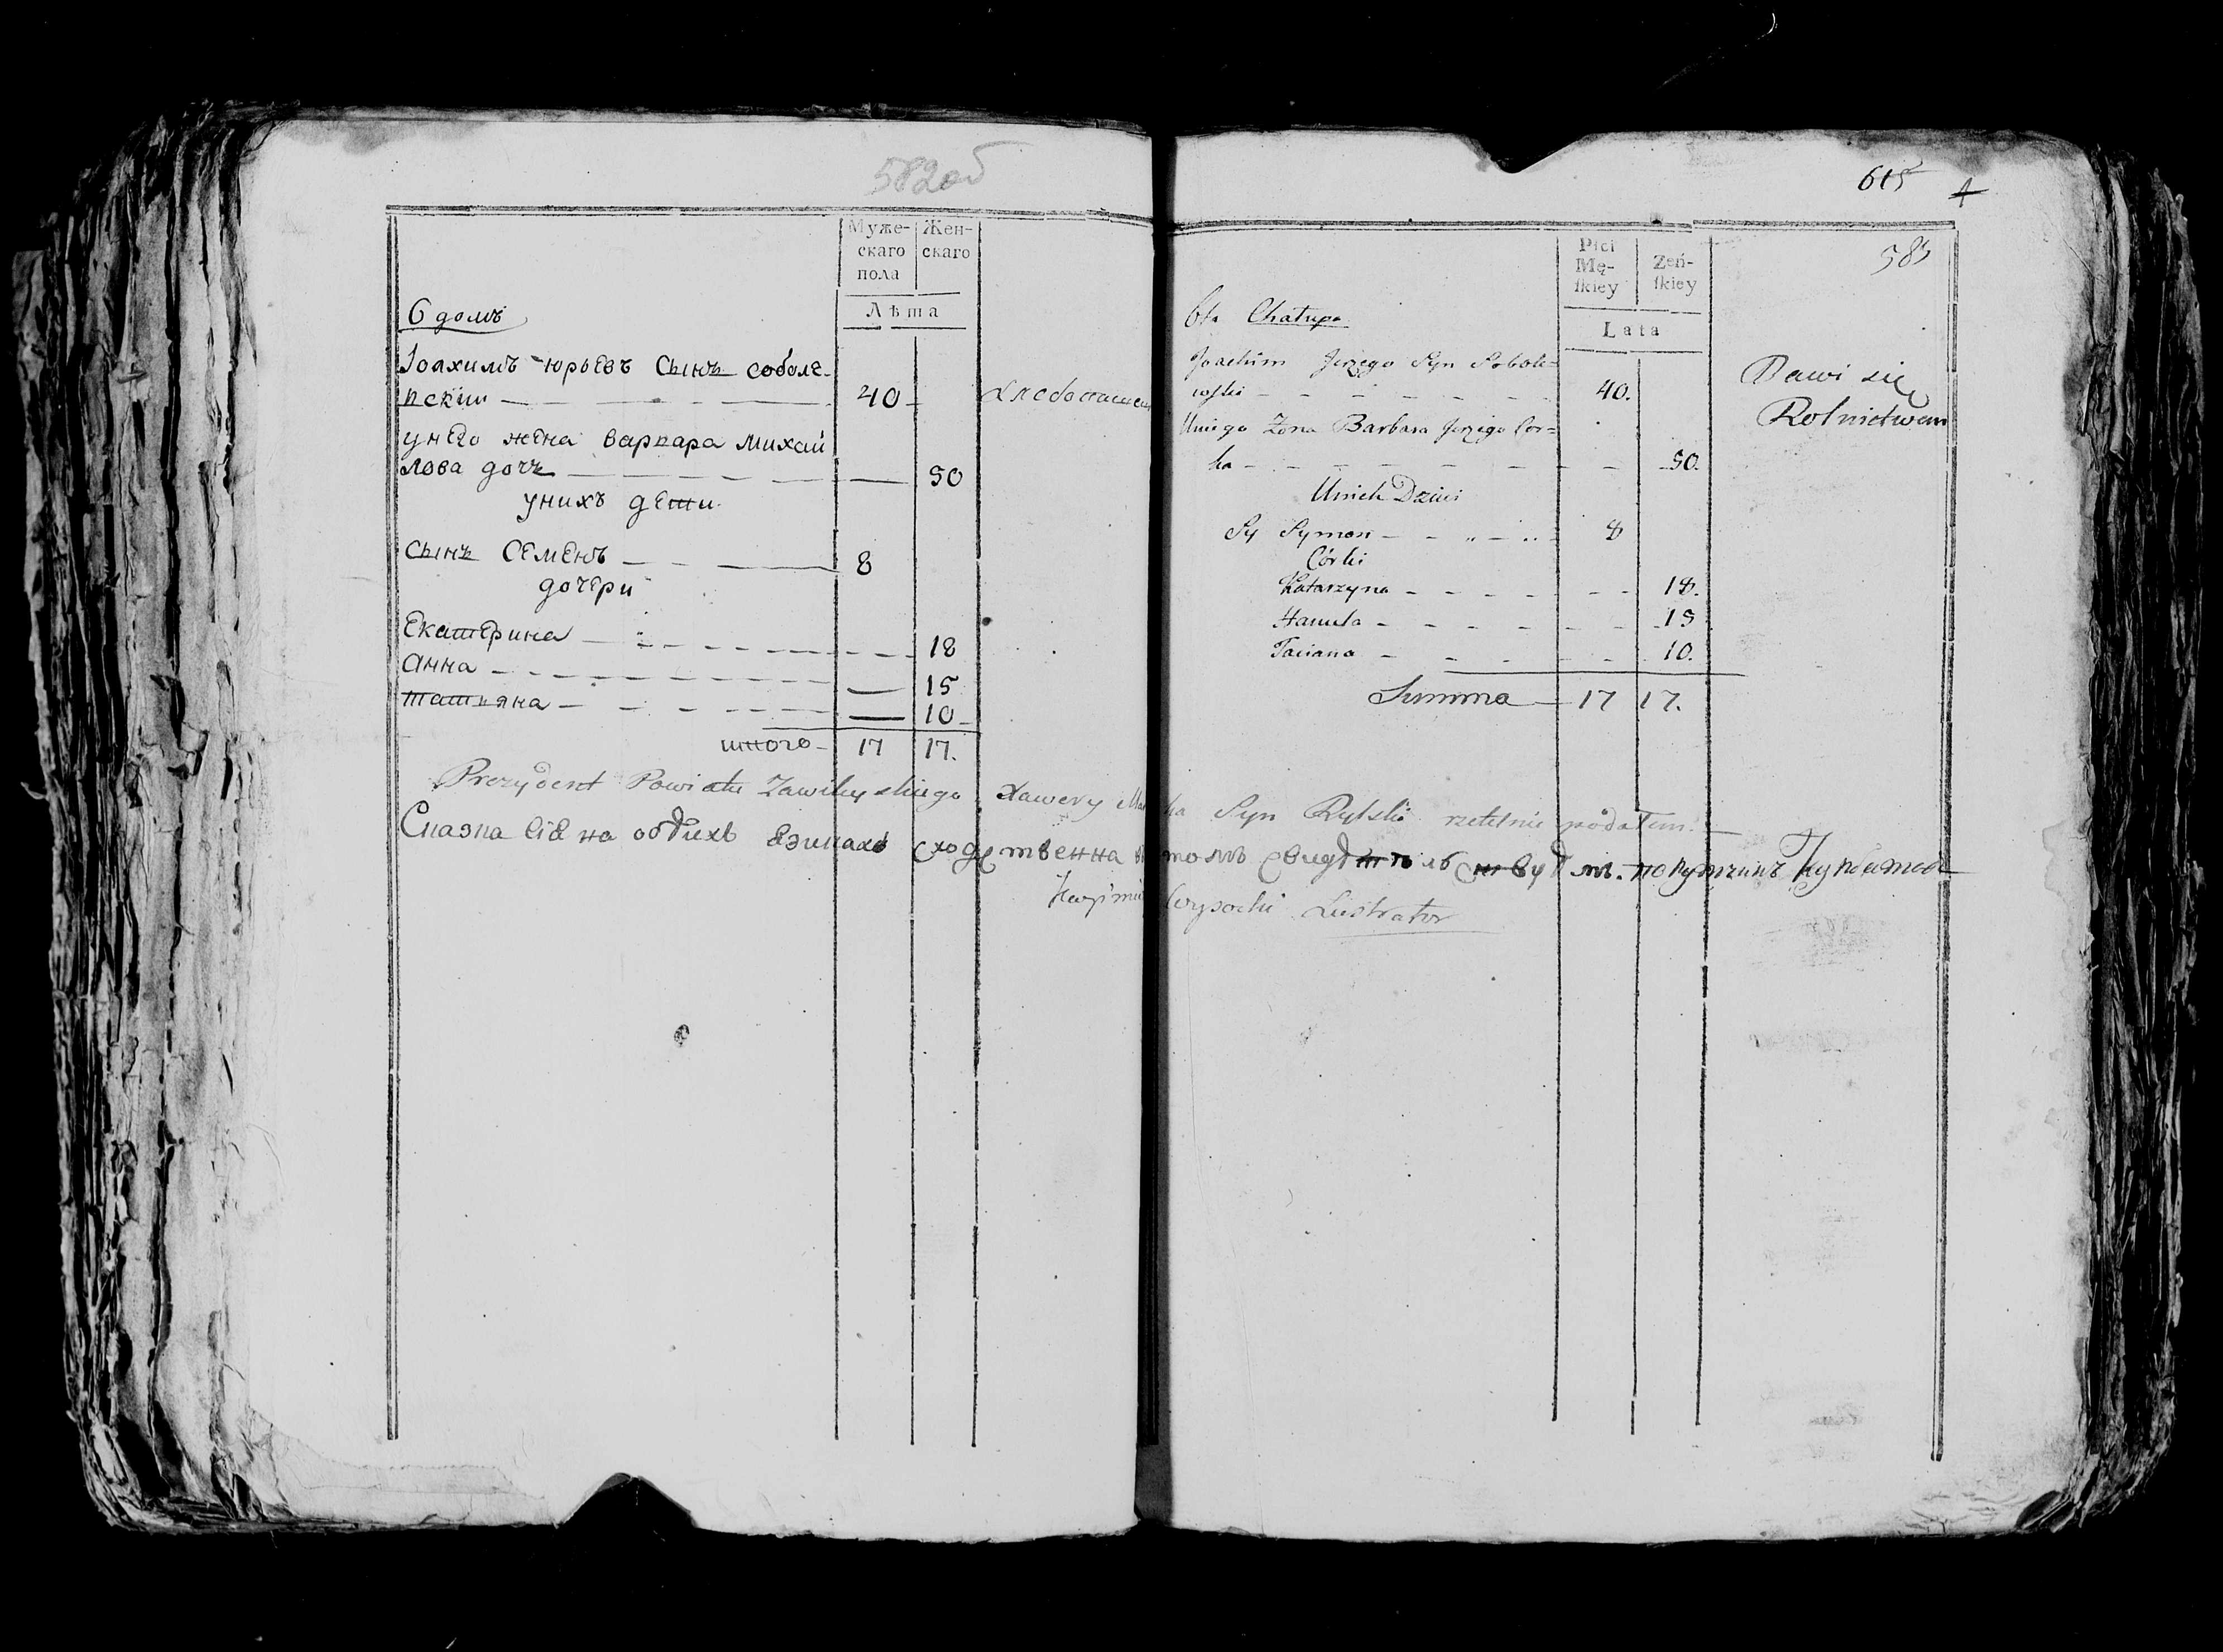 582об
Муже-
скаго
пола
Жен-
скаго
Лѣта
6 домъ
Іоахимъ Юрьевъ сынъ соболе-
вскіи 40
у него жена варвара михай
лова дочь 50
у нихъ дети
сынъ Семенъ 8
дочери
Екатерина 18
Анна 15
татьяна 10
итого 17 17.
615
583
Płci
Mę-
ſkiey
Zeń-
ſkiey
Lata
6ta Chałupa
Joachim Jerzego Syn Sobole=
wſki 40.
Uniego Żona Barbara Jerzego Cor=
ka 50.
Unich Dzieci
Sy Symon 8
Córki
Katarzyna 18.
Hanula 15
Taciana 10.
Summa 17 17.
Bawi się
Rolnictwem
Prezydent Powiatu Zawileyskiego Xawery Syn Rylski rzetelnie podałem
Сказка сія на обѣихъ язикахъ сходственна въ томъ свидѣтельствуѣтъ порутчикъ
Wysocki Lustrator